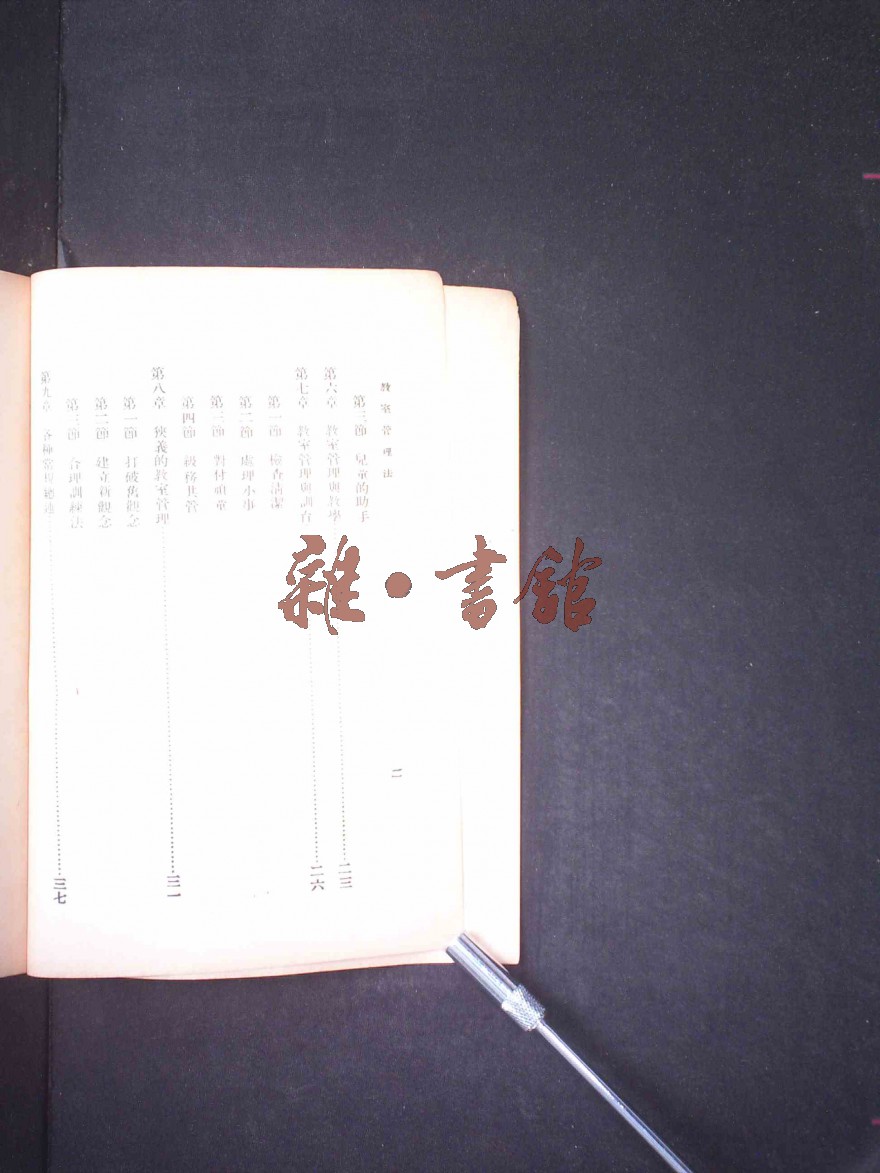 教室管理法
二
第三節 兒童的助手
第六章 教室管理與教學……二三
第七章 教室管理與訓育……二六
第一節 檢查清潔
第二節 處理小事
第三節 對付頑童
第四節 級務共管
第八章 狹義的教室管理……三一
第一節 打破舊觀念
第二節 建立新觀念
第三節 合理訓練法
第九章 各種常規總述……三七
雜·書館